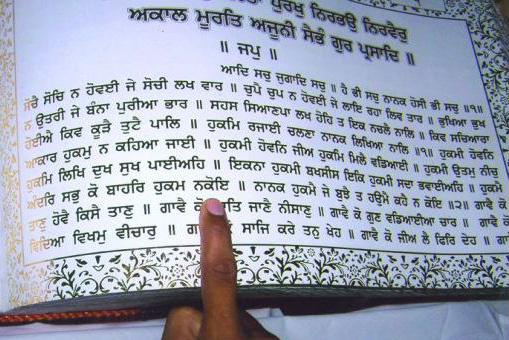 ਪੁਰਖੁ ਨਿਰਭਉ ਨਿਰਵੈਰੁ
ਅਕਾਲ ਮੂਰਤਿ ਅਜੂਨੀ ਸੈਭੰ ਗੁਰ ਪ੍ਰਸਾਦਿ ॥
॥ ਜਪੁ ॥
ਆਦਿ ਸਚੁ ਜੁਗਾਦਿ ਸਚੁ ॥ ਹੈ ਭੀ ਸਚੁ ਨਾਨਕ ਹੋਸੀ ਭੀ ਸਚੁ ॥੧॥
ਸੋਚੈ ਸੋਚਿ ਨ ਹੋਵਈ ਜੇ ਸੋਚੀ ਲਖ ਵਾਰ ॥ ਚੁਪੈ ਚੁਪ ਨ ਹੋਵਈ ਜੇ ਲਾਇ ਰਹਾ ਲਿਵ ਤਾਰ ॥ ਭੁਖਿਆ ਭੁਖ
ਨ ਉਤਰੀ ਜੇ ਬੰਨਾ ਪੁਰੀਆ ਭਾਰ ॥ ਸਹਸ ਸਿਆਣਪਾ ਲਖ ਹੋਹਿ ਤ ਇਕ ਨ ਚਲੈ ਨਾਲਿ ॥ ਕਿਵ ਸਚਿਆਰਾ
ਹੋਈਐ ਕਿਵ ਕੂੜੈ ਤੁਟੈ ਪਾਲਿ ॥ ਹੁਕਮਿ ਰਜਾਈ ਚਲਣਾ ਨਾਨਕ ਲਿਖਿਆ ਨਾਲਿ ॥੧॥ ਹੁਕਮੀ ਹੋਵਨਿ
ਆਕਾਰ ਹੁਕਮੁ ਨ ਕਹਿਆ ਜਾਈ ॥ ਹੁਕਮੀ ਹੋਵਨਿ ਜੀਅ ਹੁਕਮਿ ਮਿਲੈ ਵਡਿਆਈ ॥ ਹੁਕਮੀ ਉਤਮੁ ਨੀਚੁ
ਹੁਕਮਿ ਲਿਖਿ ਦੁਖ ਸੁਖ ਪਾਈਅਹਿ ॥ ਇਕਨਾ ਹੁਕਮੀ ਬਖਸੀਸ ਇਕਿ ਹੁਕਮੀ ਸਦਾ ਭਵਾਈਅਹਿ ॥ ਹੁਕਮੈ
ਅੰਦਰਿ ਸਭੁ ਕੋ ਬਾਹਰਿ ਹੁਕਮ ਨ ਕੋਇ ॥ ਨਾਨਕ ਹੁਕਮੈ ਜੇ ਬੁਝੈ ਤ ਹਉਮੈ ਕਹੈ ਨ ਕੋਇ ॥੨॥ ਗਾਵੈ ਕੋ
ਤਾਣੁ ਹੋਵੈ ਕਿਸੈ ਤਾਣੁ ॥ ਗਾਵੈ ਕੋ ਦਾਤਿ ਜਾਣੈ ਨੀਸਾਣੁ ॥ ਗਾਵੈ ਕੋ ਗੁਣ ਵਡਿਆਈਆ ਚਾਰ ॥ ਗਾਵੈ ਕੋ
ਵਿਦਿਆ ਵਿਖਮੁ ਵੀਚਾਰੁ ॥ ਗਾਵੈ ਕੋ ਸਾਜਿ ਕਰੇ ਤਨੁ ਖੇਹ ॥ ਗਾਵੈ ਕੋ ਜੀਅ ਲੈ ਫਿਰਿ ਦੇਹ ॥